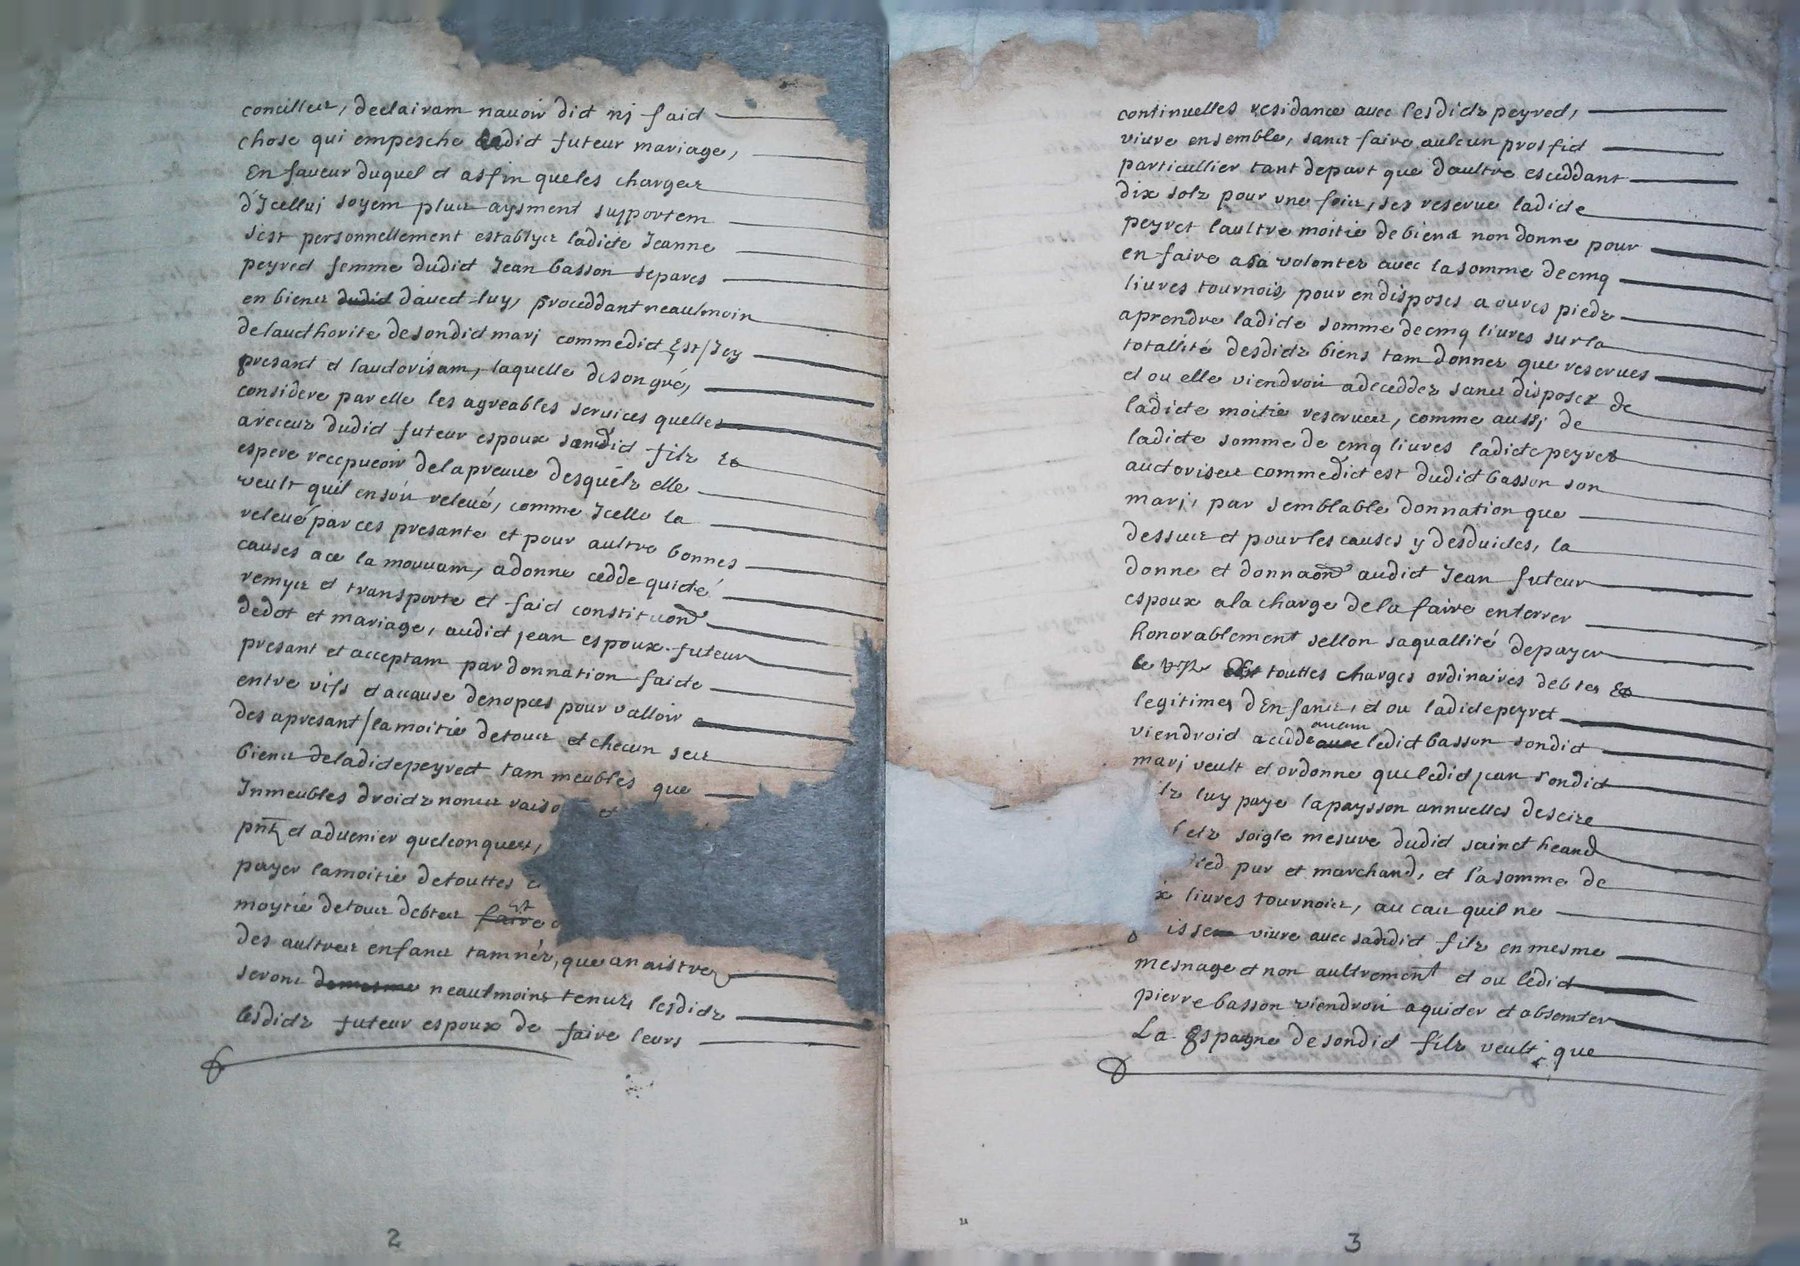 concilleur, declairam navoir dict nj faict
chose qui empesche ledict futeur mariage,
En faveur duquel et asfin queles charges
d'Icelluj soyem plus aysment supportem
s'est personnellement establye ladicte Jeanne
peyred femme dudict Jean basson separes
en biens dudict daved luy, proceddant neaulmoin
delaudhorite desondict marj commedict Est Icy
presant et laudorisam, laquelle desongré,
considere par elle les agreables services quelles
areceus dudict futeur espoux sondict filz Et
espere recepveoir delapreuve desquelz elle
veult quil ensoir relevé, comme Icelle la
relevé par ces presante et pour aultre bonnes
causes ace la mouvam, adonne cedde quicté
remys et transporte et faict constituon
dedot et mariage, audict jean espoux futeur
presant et acceptam par donnation faicte
entre vifs et acause denopces pour valloir
des apresant / la moitié detous et checun ses
biens deladicte peyred tam meubles que
Inmeubles droictz noms raiso et
pnt et advenier quelconques,
payer lamoitie detouttes
moytie detous debtes faire
des aultres enfans tamnés, que anaistre
seront demesme neaulmoins tenus lesdictz
lesdictz futeur espoux de faire leurs
2
continuelles residance avec lesdictz peyred,
vivre ensemble, sans faire aulcun prosfid
particullier tant depart que daultre esceddant
dix solz pour une fois, ses reserve ladicte
peyret laultre moitié de biens non donne pour
en faire a sa volontes avec la somme decinq
livres tournois, pour en disposes a ouvres piedz
aprendre ladicte somme decinq livres sur la
totallité desdictz biens tam donnes que reserves
et ou elle viendroir adeceddes sans disposer de
ladicte moitie reservees, comme aussj de
ladicte somme de cinq livres ladicte peyret
audorisee commedict est dudict basson son
marj, par semblable donnation que
dessus et pour les causes y desduictes, la
donne et donnaon audict Jean futeur
espoux ala charge dela faire enterrer
honorablement sellon saquallité depayer
touttes charges ordinaires debtes Et
legitimes dEnfans, et ou ladicte peyret
viendroid acedde avam ledict basson sondict
marj veult et ordonne queledict jean sondict
lz luy paye lapaysson annuelles deseize
letz soigle mesure dudict sainct heand
pur et marchand, et lasomme de
x livres tournois, au cas quil ne
issem vivre avec sadidict filz enmesme
mesnage et non aultrement et ou ledict
pierre basson viendroir aquicter et absenter
La Espagne de sondict filz veult que
3